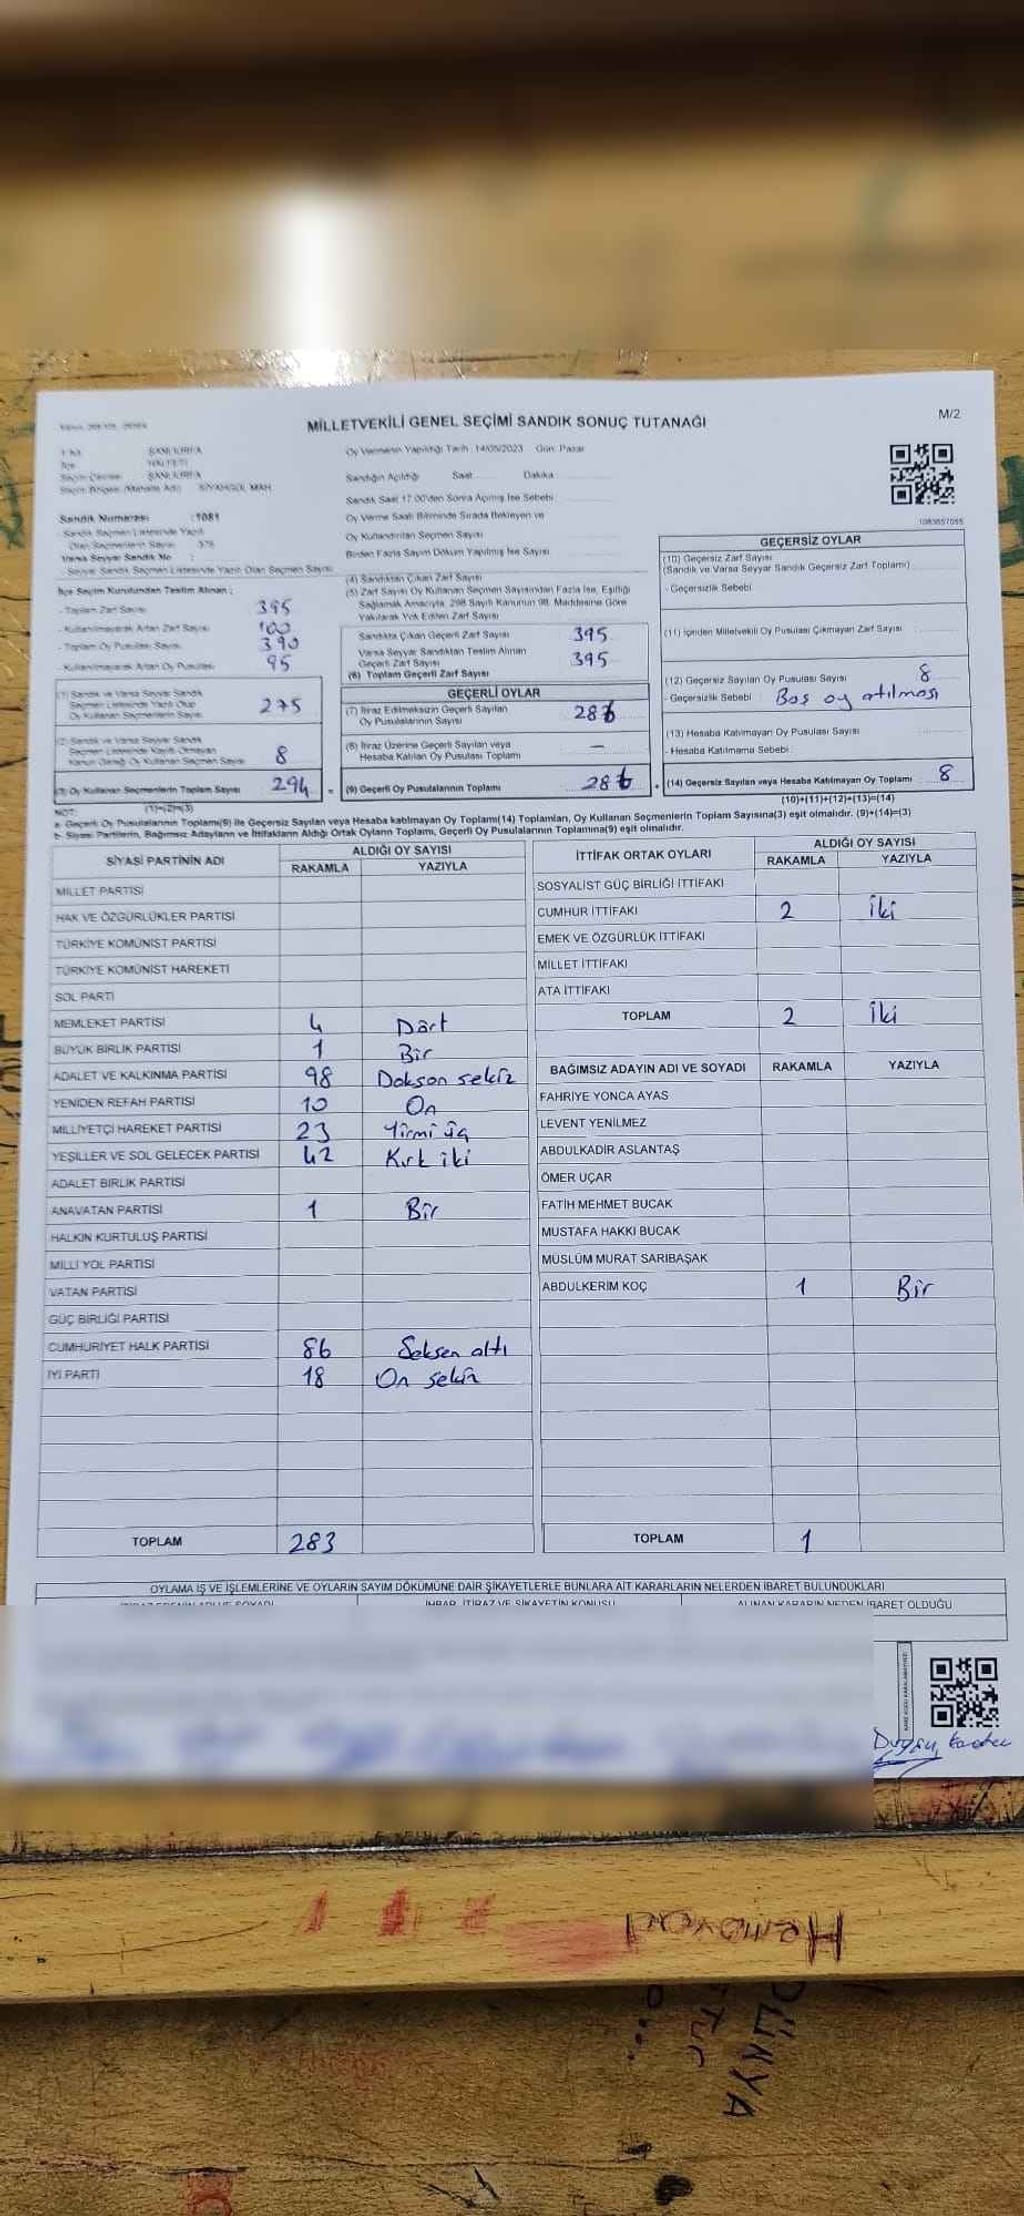 MİLLETVEKİLİ GENEL SEÇİMİ SANDIK SONUÇ TUTANAĞI
M/2
ŞANLIURFA
ŞANLIURFA
Oy Vermenin Yapıldığı Tarih : 14/05/2023 Gün: Pazar
Sandığın Açıldığı Saat Dakika
Sandık Saat 17:00'den Sonra Açılmış İse Sebebi
Sandık Numarası :1081
Oy Verme Saati Bitiminde Sırada Bekleyen ve
Oy Kullandırılan Seçmen Sayısı
Birden Fazla Sayım Döküm Yapılmış İse Sayısı
1083657055
Sandık Seçmen Listesinde Yazılı
Olan Seçmenlerin Sayısı 375
Varsa Seyyar Sandık No :
Seyyar Sandık Seçmen Listesinde Yazılı Olan Seçmen Sayısı
İlçe Seçim Kurulundan Teslim Alınan :
- Toplam Zarf Sayısı 395
- Kullanılmayarak Artan Zarf Sayısı 100
- Toplam Oy Pusulası Sayısı 390
- Kullanılmayarak Artan Oy Pusulası 95
(1) Sandık ve Varsa Seyyar Sandık
Seçmen Listesinde Yazılı Olup
Oy Kullanan Seçmenlerin Sayısı 275
(2) Sandık ve Varsa Seyyar Sandık
Seçmen Listesinde Kayıtlı Olmayan
Kanun Gereği Oy Kullanan Seçmen Sayısı 8
(3) Oy Kullanan Seçmenlerin Toplam Sayısı 294
(1)+(2)=(3)
(4) Sandıktan Çıkan Zarf Sayısı
(5) Zarf Sayısı Oy Kullanan Seçmen Sayısından Fazla İse, Eşitliği
Sağlamak Amacıyla, 298 Sayılı Kanunun 98. Maddesine Göre
Yakılarak Yok Edilen Zarf Sayısı
Sandıkta Çıkan Geçerli Zarf Sayısı 395
Varsa Seyyar Sandıktan Teslim Alınan
Geçerli Zarf Sayısı 395
(6) Toplam Geçerli Zarf Sayısı
GEÇERLİ OYLAR
(7) İtiraz Edilmeksizin Geçerli Sayılan
Oy Pusulalarının Sayısı 286
(8) İtiraz Üzerine Geçerli Sayılan veya
Hesaba Katılan Oy Pusulası Toplamı —
= (9) Geçerli Oy Pusulalarının Toplamı 286
GEÇERSİZ OYLAR
(10) Geçersiz Zarf Sayısı
(Sandık ve Varsa Seyyar Sandık Geçersiz Zarf Toplamı)
- Geçersizlik Sebebi
(11) İçinden Milletvekili Oy Pusulası Çıkmayan Zarf Sayısı
(12) Geçersiz Sayılan Oy Pusulası Sayısı 8
- Geçersizlik Sebebi Boş oy atılması
(13) Hesaba Katılmayan Oy Pusulası Sayısı
- Hesaba Katılmama Sebebi
+ (14) Geçersiz Sayılan veya Hesaba Katılmayan Oy Toplamı 8
(10)+(11)+(12)+(13)=(14)
NOT:
a- Geçerli Oy Pusulalarının Toplamı(9) ile Geçersiz Sayılan veya Hesaba katılmayan Oy Toplamı(14) Toplamları, Oy Kullanan Seçmenlerin Toplam Sayısına(3) eşit olmalıdır. (9)+(14)=(3)
b- Siyasi Partilerin, Bağımsız Adayların ve İttifakların Aldığı Ortak Oyların Toplamı, Geçerli Oy Pusulalarının Toplamına(9) eşit olmalıdır.
SİYASİ PARTİNİN ADI ALDIĞI OY SAYISI
RAKAMLA YAZIYLA
MİLLET PARTİSİ
HAK VE ÖZGÜRLÜKLER PARTİSİ
TÜRKİYE KOMÜNİST PARTİSİ
TÜRKİYE KOMÜNİST HAREKETİ
SOL PARTİ
MEMLEKET PARTİSİ 4 Dört
BÜYÜK BİRLİK PARTİSİ 1 Bir
ADALET VE KALKINMA PARTİSİ 98 Dokson sekiz
YENİDEN REFAH PARTİSİ 10 On
MİLLİYETÇİ HAREKET PARTİSİ 23 Yirmi üç
YEŞİLLER VE SOL GELECEK PARTİSİ 42 Kırk iki
ADALET BİRLİK PARTİSİ
ANAVATAN PARTİSİ 1 Bir
HALKIN KURTULUŞ PARTİSİ
MİLLİ YOL PARTİSİ
VATAN PARTİSİ
GÜÇ BİRLİĞİ PARTİSİ
CUMHURİYET HALK PARTİSİ 86 Seksen altı
İYİ PARTİ 18 On sekiz
TOPLAM 283
İTTİFAK ORTAK OYLARI ALDIĞI OY SAYISI
RAKAMLA YAZIYLA
SOSYALİST GÜÇ BİRLİĞİ İTTİFAKI
CUMHUR İTTİFAKI 2 İki
EMEK VE ÖZGÜRLÜK İTTİFAKI
MİLLET İTTİFAKI
ATA İTTİFAKI
TOPLAM 2 İki
BAĞIMSIZ ADAYIN ADI VE SOYADI RAKAMLA YAZIYLA
FAHRİYE YONCA AYAS
LEVENT YENİLMEZ
ABDULKADİR ASLANTAŞ
ÖMER UÇAR
FATİH MEHMET BUCAK
MUSTAFA HAKKI BUCAK
MÜSLÜM MURAT SARIBAŞAK
ABDULKERİM KOÇ 1 Bir
TOPLAM 1
OYLAMA İŞ VE İŞLEMLERİNE VE OYLARIN SAYIM DÖKÜMÜNE DAİR ŞİKAYETLERLE BUNLARA AİT KARARLARIN NELERDEN İBARET BULUNDUKLARI
İHBAR, İTİRAZ VE ŞİKAYETİN KONUSU ALINAN KARARIN NEDEN İBARET OLDUĞU
DÜNYA